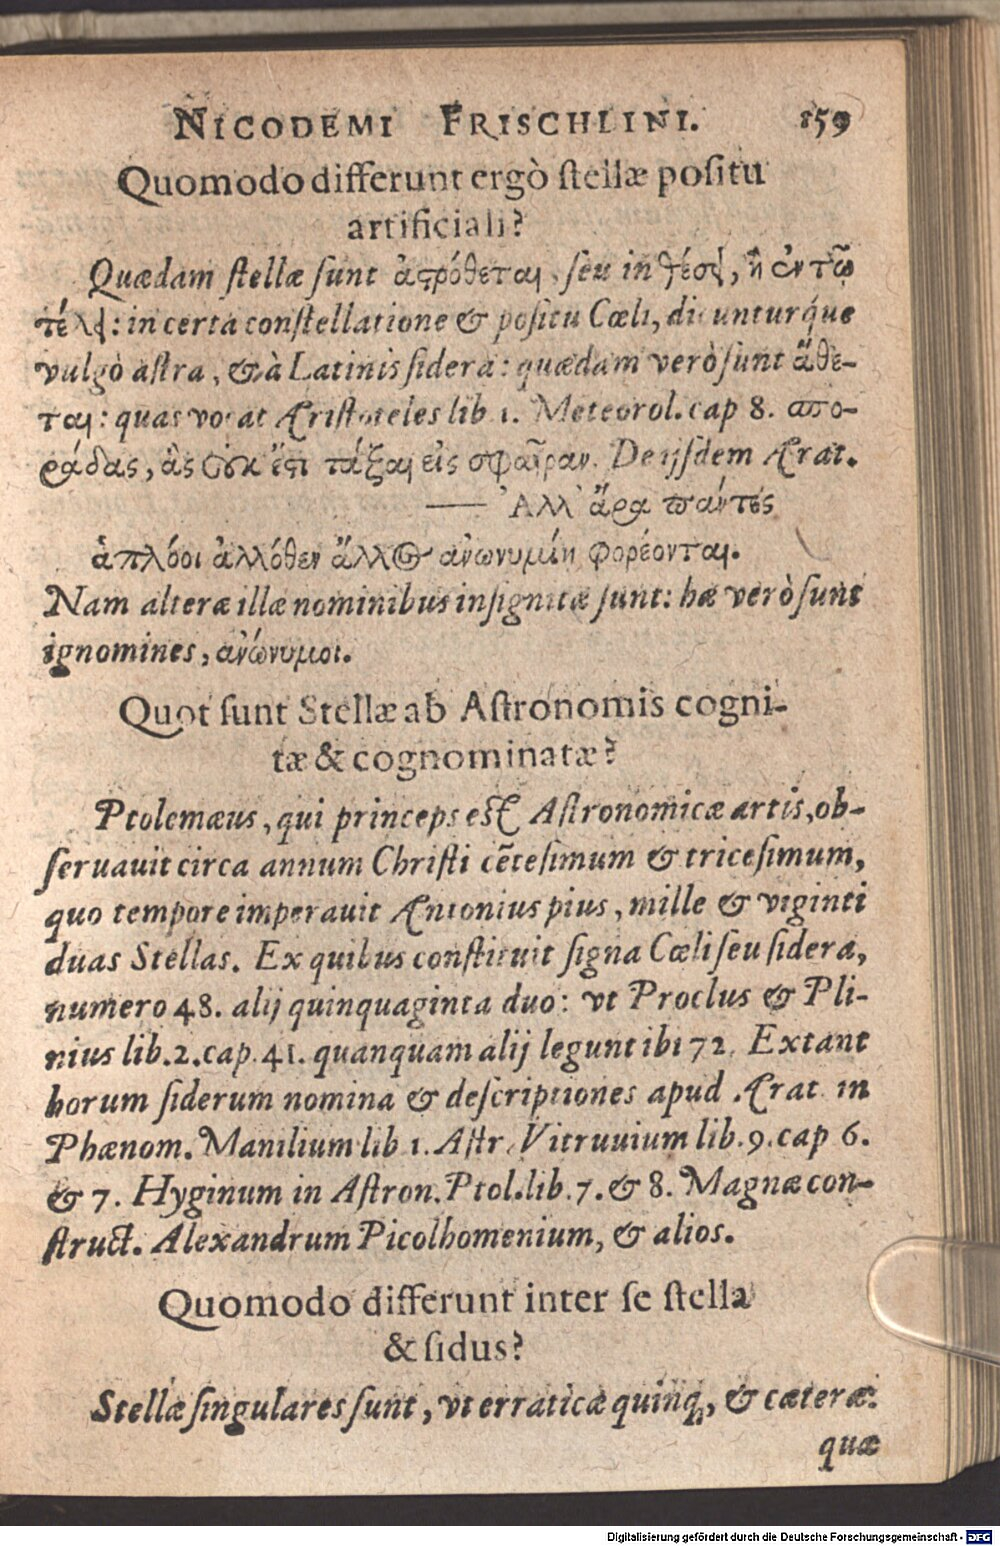 NICODEMI FRISCHLINI. 159
Quomodo differunt ergò ſtellæ poſitu
artificiali?
Quædam ſtellæ ſunt ἀςρόθεται, ſeu in θέσει, ἢ ἐν τῷ
τέλει: in certa conſtellatione & poſitu Cœli, dicunturq́ue
vulgò aſtra, & à Latinis ſidera: quædam verò ſunt ἄθε-
ται: quas vocat Ariſtoteles lib 1. Meteorol. cap 8. σπο-
ράδας, ἃς οὐκ ἔςι τάξαι εἰς σφαῖραν. De ijſdem Arat.
—— Ἀλλ' ἄρα πάντες
ἁπλόοι ἀλλόθεν ἄλλος ἀνωνυμίῃ φορέονται.
Nam alteræ illæ nominibus inſignitæ ſunt: hæ verò ſunt
ignomines, ἀνώνυμοι.
Quot ſunt Stellæ ab Aſtronomis cogni-
tæ & cognominatæ?
Ptolemæus, qui princeps eſt Aſtronomicæ artis, ob-
ſeruauit circa annum Chriſti cẽteſimum & triceſimum,
quo tempore imperauit Antonius pius, mille & viginti
duas Stellas. Ex quibus conſtituit ſigna Cœli ſeu ſidera,
numero 48. alij quinquaginta duo: vt Proclus & Pli-
nius lib. 2. cap. 41. quanquam alij legunt ibi 72. Extant
horum ſiderum nomina & deſcriptiones apud Arat in
Phænom. Manilium lib 1. Aſtr. Vitruuium lib. 9. cap 6.
& 7. Hyginum in Aſtron. Ptol. lib. 7. & 8. Magnæ con-
ſtruct. Alexandrum Picolhomenium, & alios.
Quomodo differunt inter ſe ſtella
& ſidus?
Stellæ ſingulares ſunt, vt erraticæ quinq;, & cæteræ:
quæ
Digitalisierung gefördert durch die Deutsche Forschungsgemeinschaft - DFG